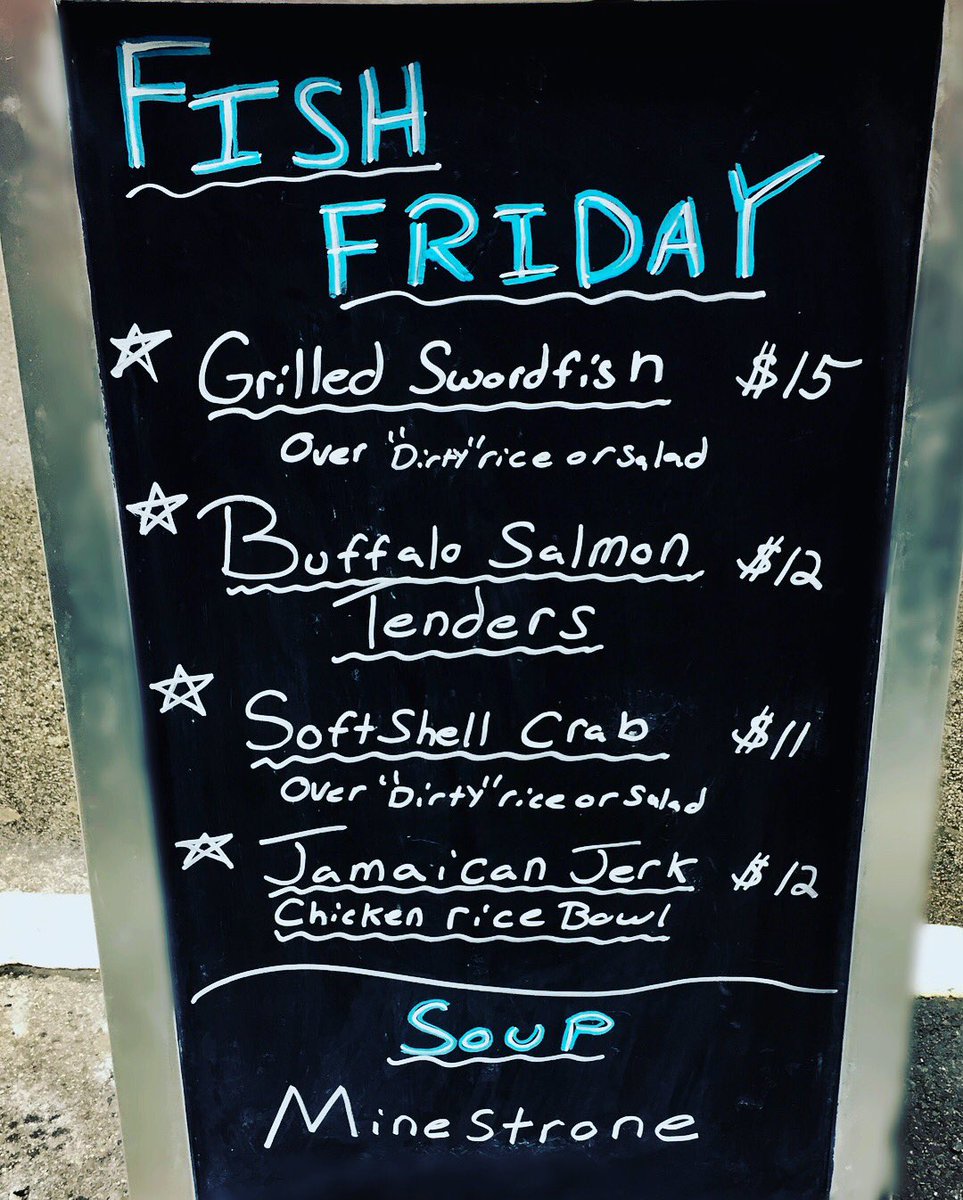 FISH
FRIDAY
Grilled Swordfish $15
Over "Dirty" rice or salad
Buffalo Salmon $12
Tenders
Softshell Crab $11
Over "Dirty" rice or salad
Jamaican Jerk $12
Chicken rice Bowl
Soup
Minestrone